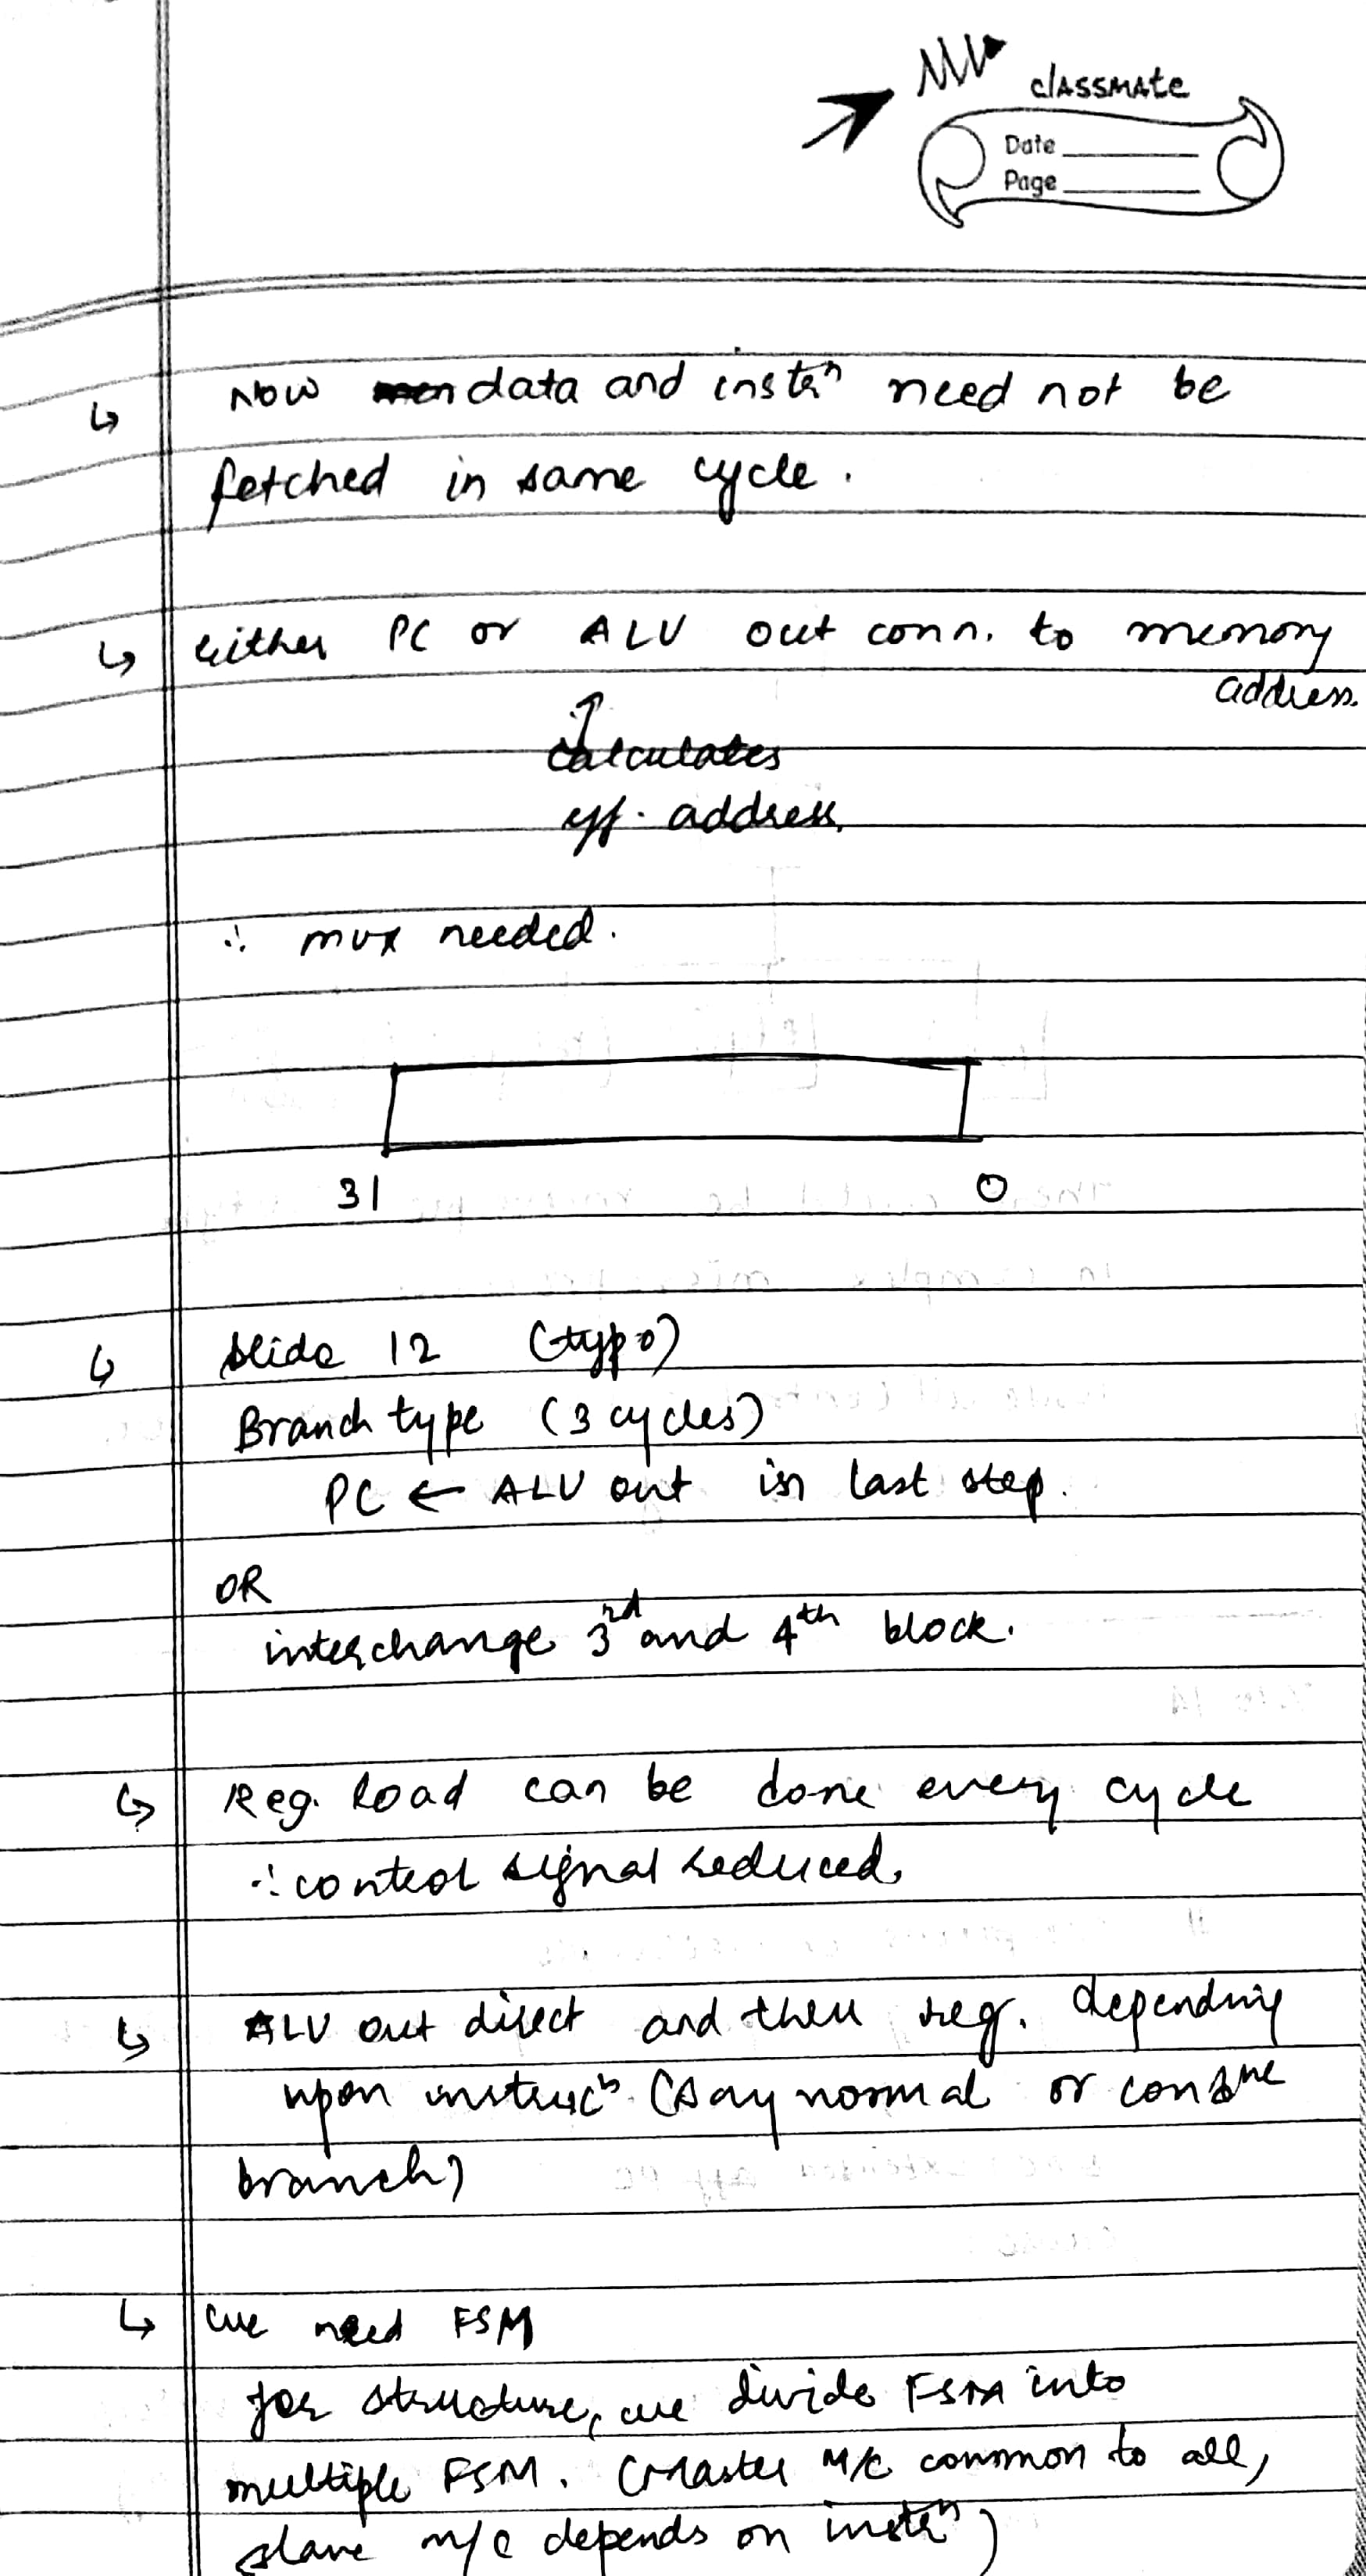 classmate
Date
Page
Now data and instrⁿ need not be
fetched in same cycle.
Either PC or ALU out conn. to memory
address.
calculates
eff. address.
∴ mux needed.
31 0
Slide 12 (typo)
Branch type (3 cycles)
PC ← ALU out in last step.
OR
interchange 3rd and 4th block.
Reg. load can be done every cycle
∴ control signal reduced.
ALU out direct and then reg. depending
upon instrucⁿ (say normal or
branch)
We need FSM
for structure, we divide FSM into
multiple FSM. (Master M/C common to all,
slave m/c depends on instrⁿ)